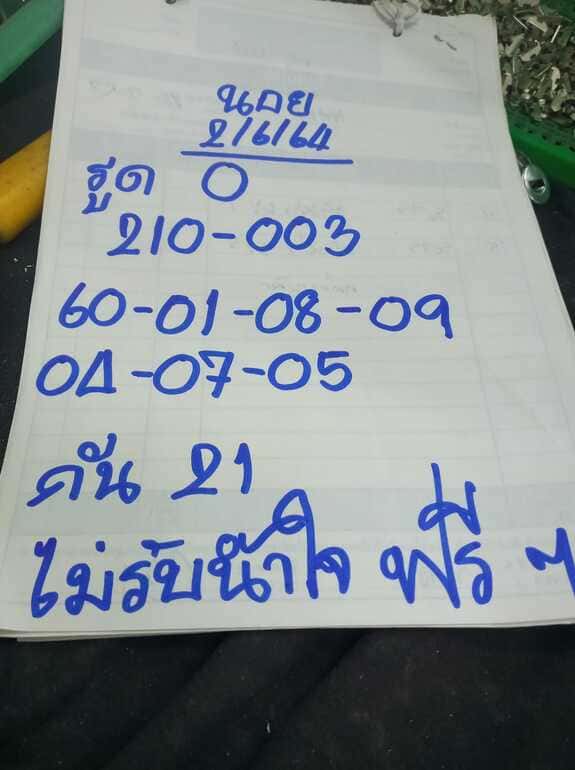 นอย
2/6/64
รูด 0
210-003
60-01-08-09
04-07-05
ดัน 21
ไม่รับน้ำใจ ฟรี ๆ